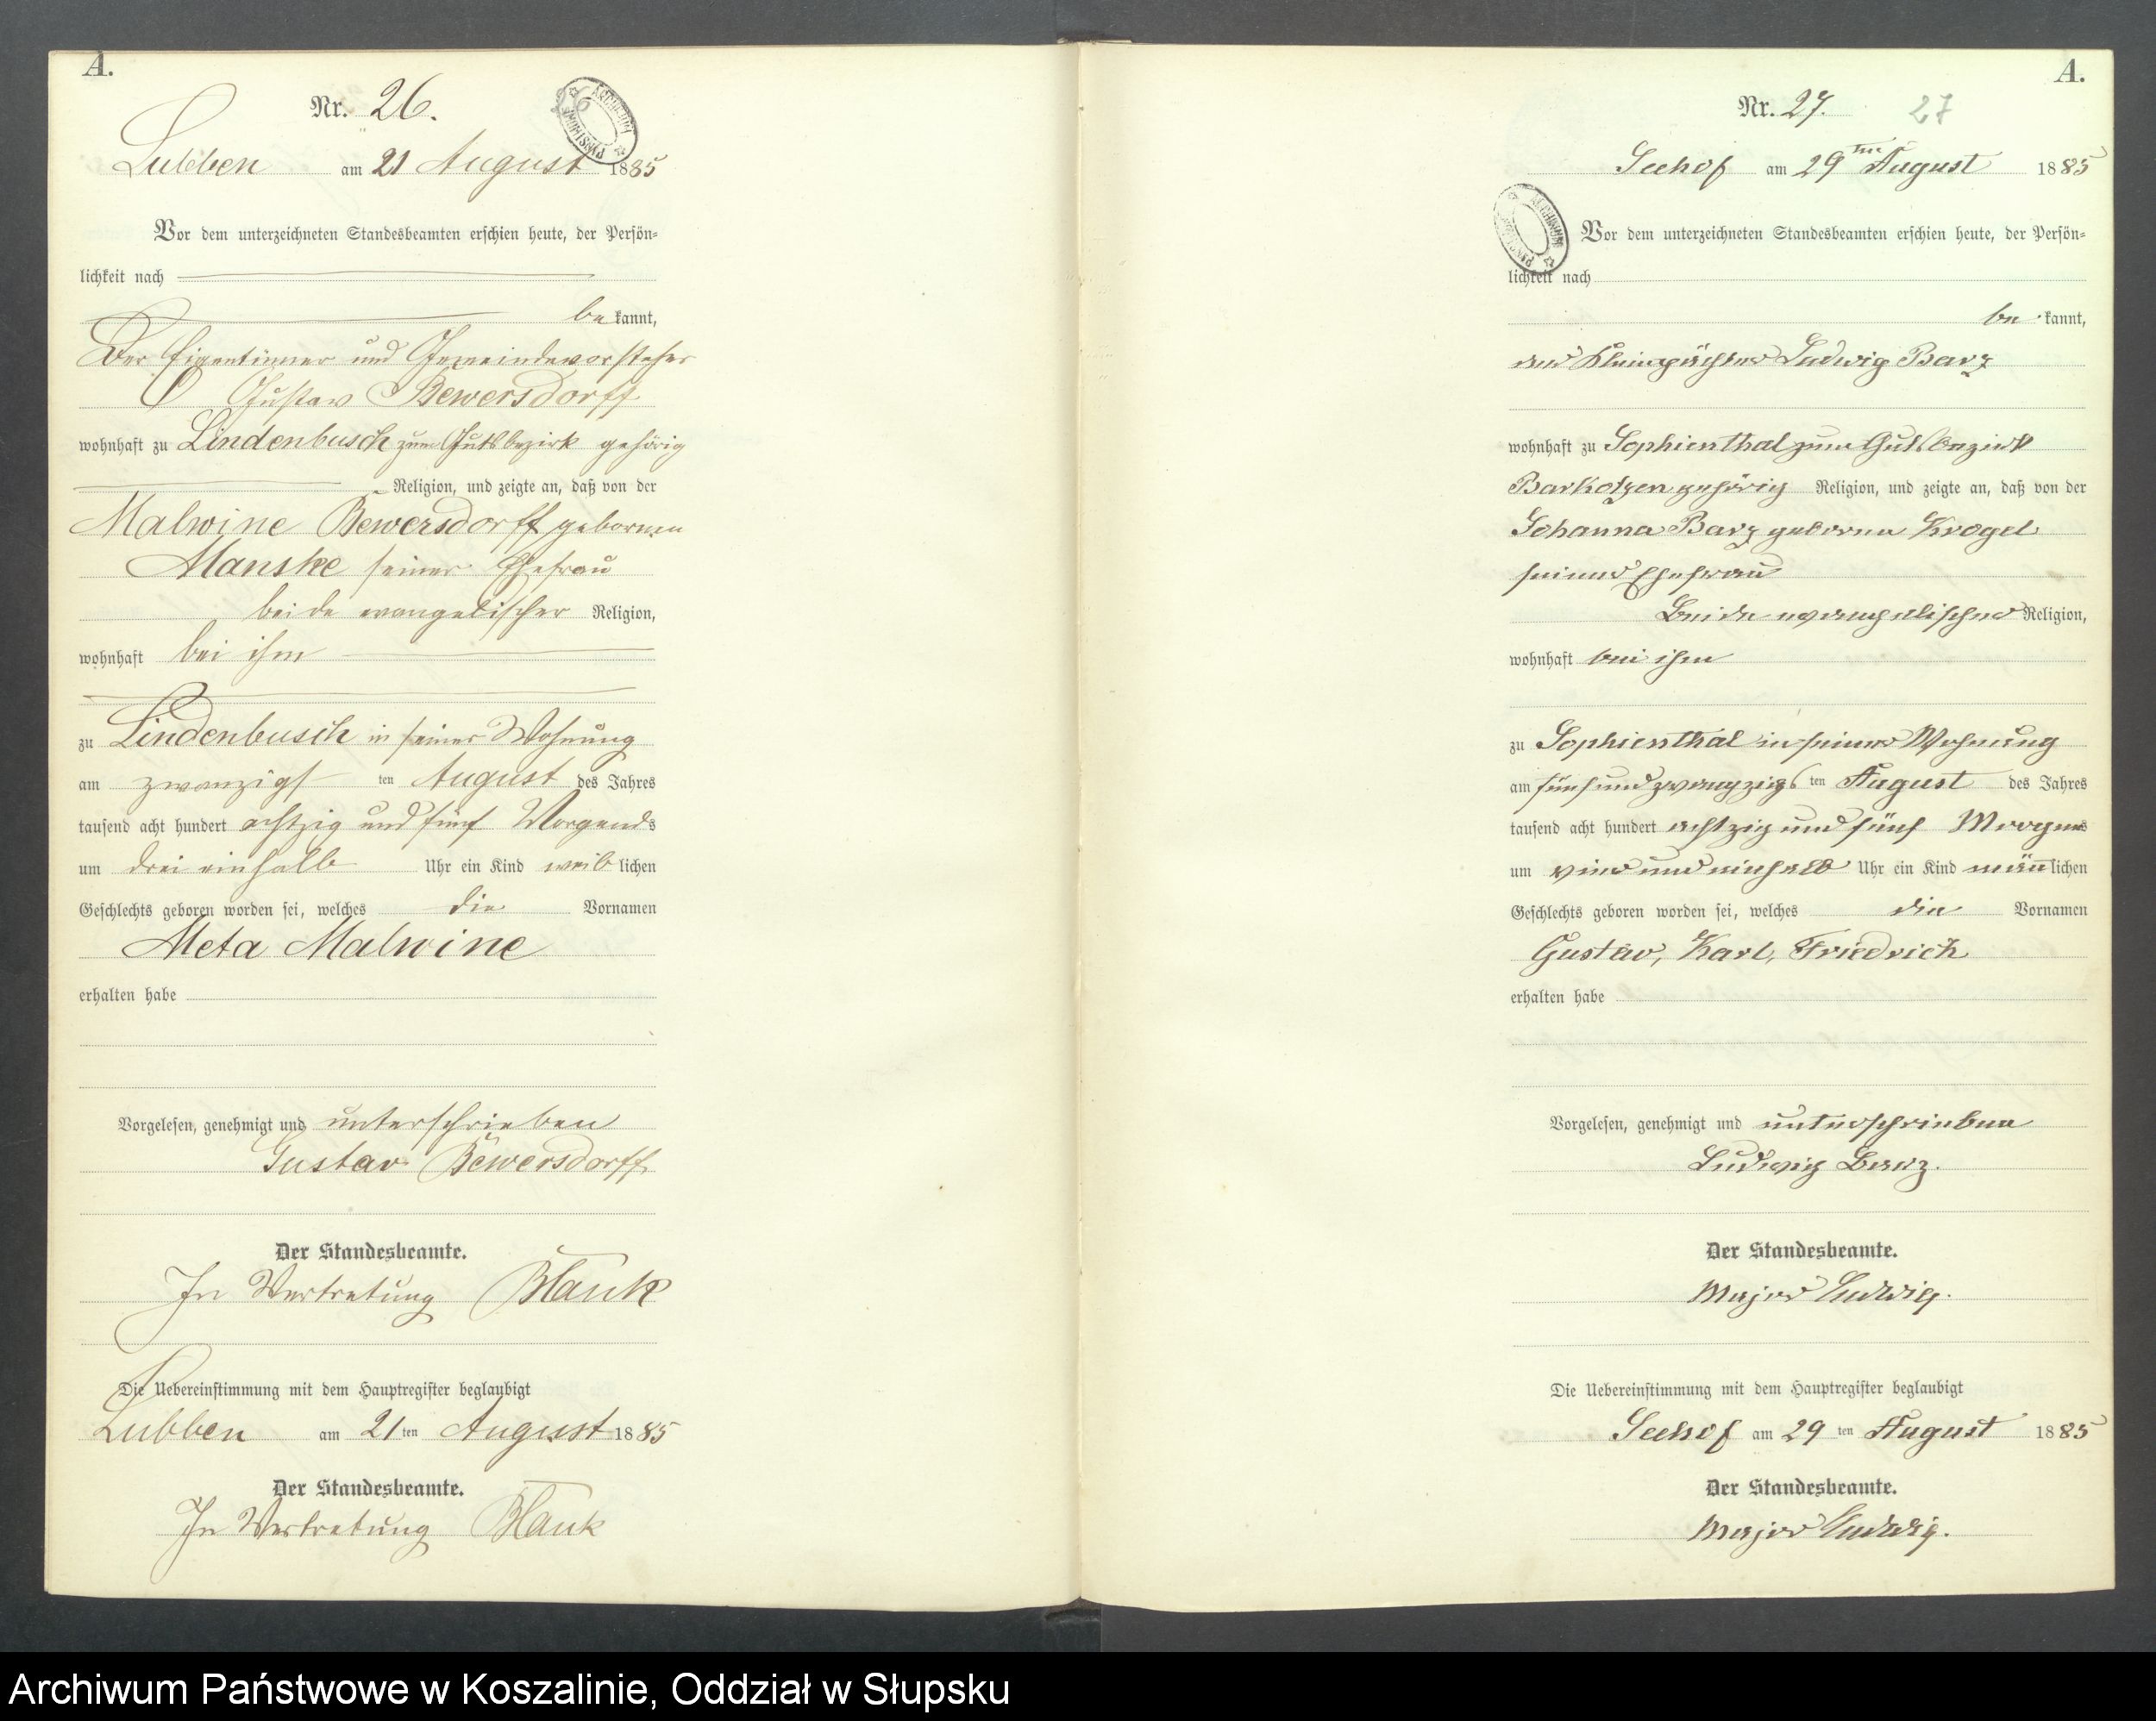 A.
Nr. 26.
26
ARCHIWUM PAŃSTWOWE
Lubben am 21 August 1885
Vor dem unterzeichneten Standesbeamten erschien heute, der Persön=
lichkeit nach
be kannt,
Der Eigentümer und Gemeindevorsteher
Gustav Bewersdorff
wohnhaft zu Lindenbusch zum Gutsbezirk gehörig
Religion, und zeigte an, daß von der
Malwine Bewersdorff gebornen
Manske seiner Ehefrau
beide evangelischer Religion,
wohnhaft bei ihm
zu Lindenbusch in seiner Wohnung
am zwanzigsten August des Jahres
tausend acht hundert achtzig und fünf Morgends
um drei einhalb Uhr ein Kind weiblichen
Geschlechts geboren worden sei, welches die Vornamen
Meta Malwine
erhalten habe
Vorgelesen, genehmigt und unterschrieben
Gustav Bewersdorff
Der Standesbeamte.
In Vertretung Blauk
Die Uebereinstimmung mit dem Hauptregister beglaubigt
Lubben am 21ten August 1885
Der Standesbeamte.
In Vertretung Blauk
A.
Nr. 27. 27
Seehof am 29ten August 1885
Vor dem unterzeichneten Standesbeamten erschien heute, der Persön=
lichkeit nach
be kannt,
der Kleinpächter Ludwig Barz
wohnhaft zu Sophienthal zum Gutsbezirk
Barkotzen gehörig Religion, und zeigte an, daß von der
Johanna Barz geborne Krogel
seiner Ehefrau
Beide evangelischer Religion,
wohnhaft bei ihm
zu Sophienthal in seiner Wohnung
am fünfundzwanzigsten August des Jahres
tausend acht hundert achtzig und fünf Morgens
um vier und einhalb Uhr ein Kind männlichen
Geschlechts geboren worden sei, welches die Vornamen
Gustav, Karl, Friedrich
erhalten habe
Vorgelesen, genehmigt und unterschrieben
Ludwig Barz.
Der Standesbeamte.
Major Ludwig.
Die Uebereinstimmung mit dem Hauptregister beglaubigt
Seehof am 29ten August 1885
Der Standesbeamte.
Major Ludwig.
Archiwum Państwowe w Koszalinie, Oddział w Słupsku